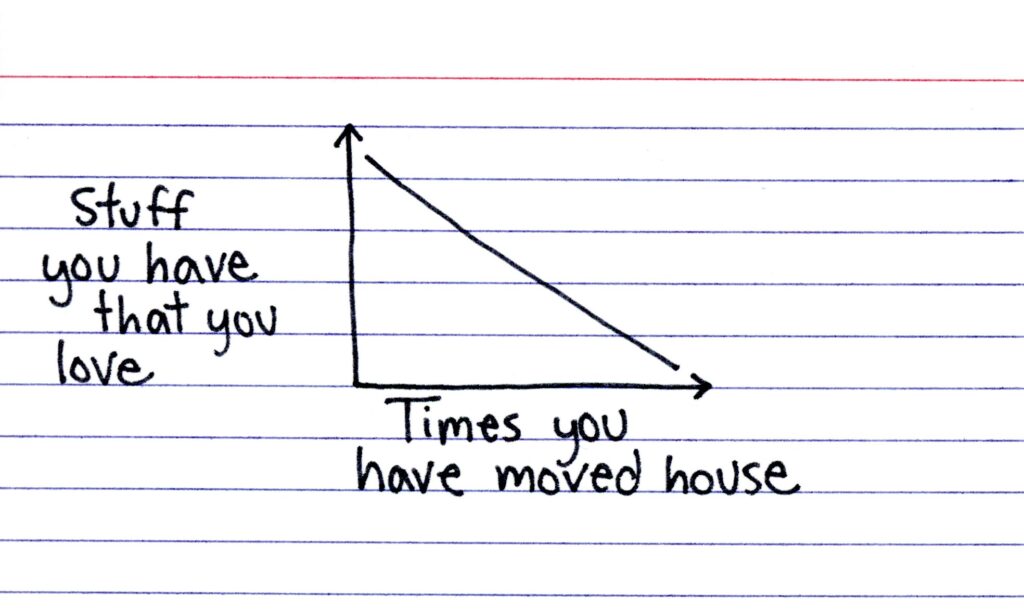 Stuff
you have
that you
love
Times you
have moved house